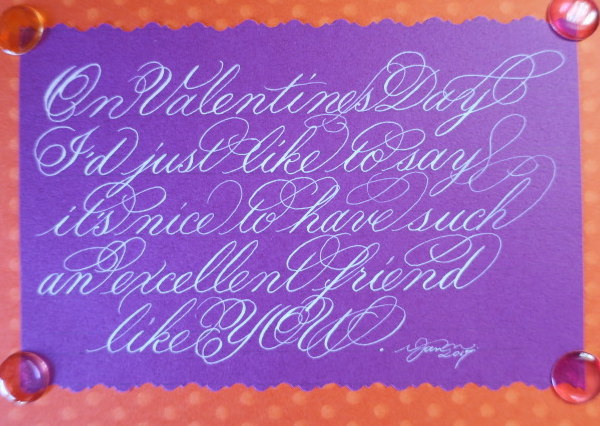 On Valentines Day
I'd just like to say
it's nice to have such
an excellent friend
like YOU.